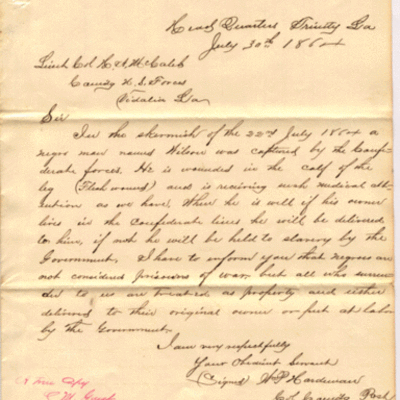 Head Quarters Trinity La
July 30th 1864
Lieut Col H A McCaleb
Comdg U. S. Forces
Vidalia La
Sir
In the skirmish of the 22nd July 1864 a
negro man named Wilson was captured by the Confe-
derate forces. He is wounded in the calf of the
leg (Flesh wound) and is reciving such medical att-
ention as we have. When he is well if his owner
lives in the confederate lines he will be delivered
to him, if not he will be held to slavery by the
Government. I have to inform you that negroes are
not considered prisoners of war, but all who surren-
der to us are treated as property and either
delivered to their original owner or put at labor
by the Government.
I am very respectfully
Your Obedient Servant
(Signed) W P Hardeman
Col Comdg Post
A true copy